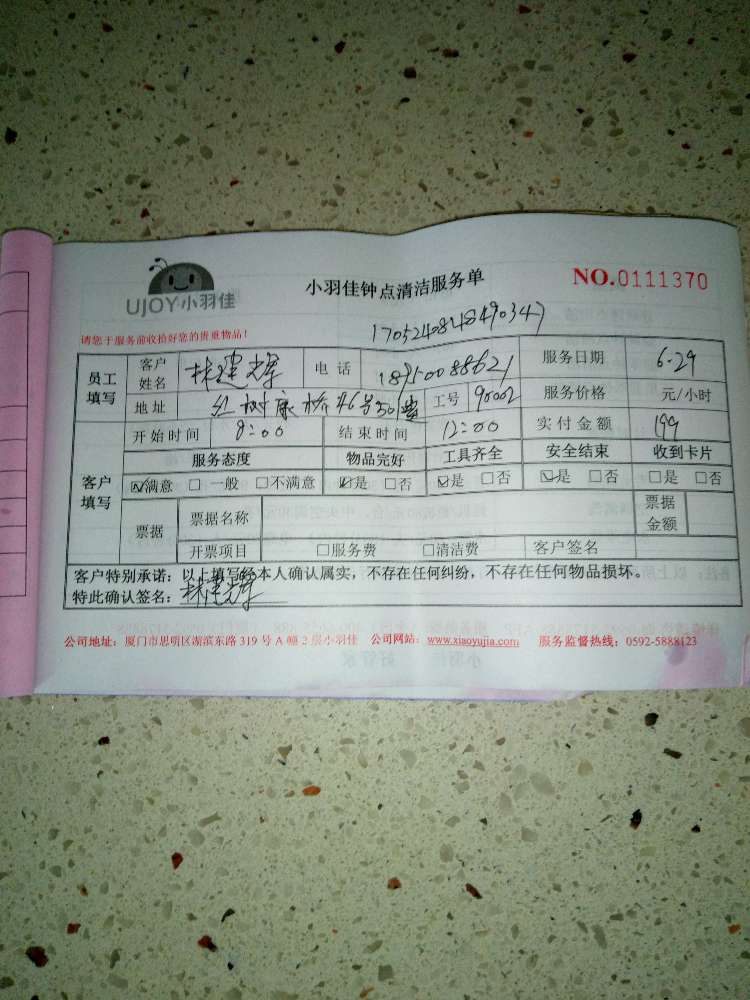 UJOY小羽佳
小羽佳钟点清洁服务单
NO.0111370
请您于服务前收拾好您的贵重物品!
17052408148490347
员工填写 客户姓名 林建辉 电话 18750088621 服务日期 6.29
地址 红树康桥46号 工号 90002 服务价格 元/小时
客户填写 开始时间 8:00 结束时间 12:00 实付金额 199
服务态度 物品完好 工具齐全 安全结束 收到卡片
☑满意 □一般 □不满意 ☑是 □否 ☑是 □否 ☑是 □否 □是 □否
票据 票据名称 票据金额
开票项目 □服务费 □清洁费 客户签名
客户特别承诺:以上填写经本人确认属实,不存在任何纠纷,不存在任何物品损坏。
特此确认签名:林建辉
公司地址:厦门市思明区湖滨东路319号A幢2层小羽佳 公司网站:www.xiaoyujia.com 服务监督热线:0592-5888123